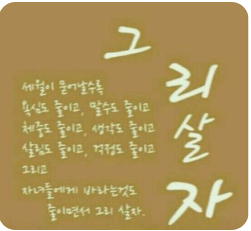 그리 살자
세월이 묻어날수록
욕심도 줄이고, 말수도 줄이고
체중도 줄이고, 생각도 줄이고
살림도 줄이고, 걱정도 줄이고
그리고
자녀들에게 바라는것도
줄이면서 그리 살자.